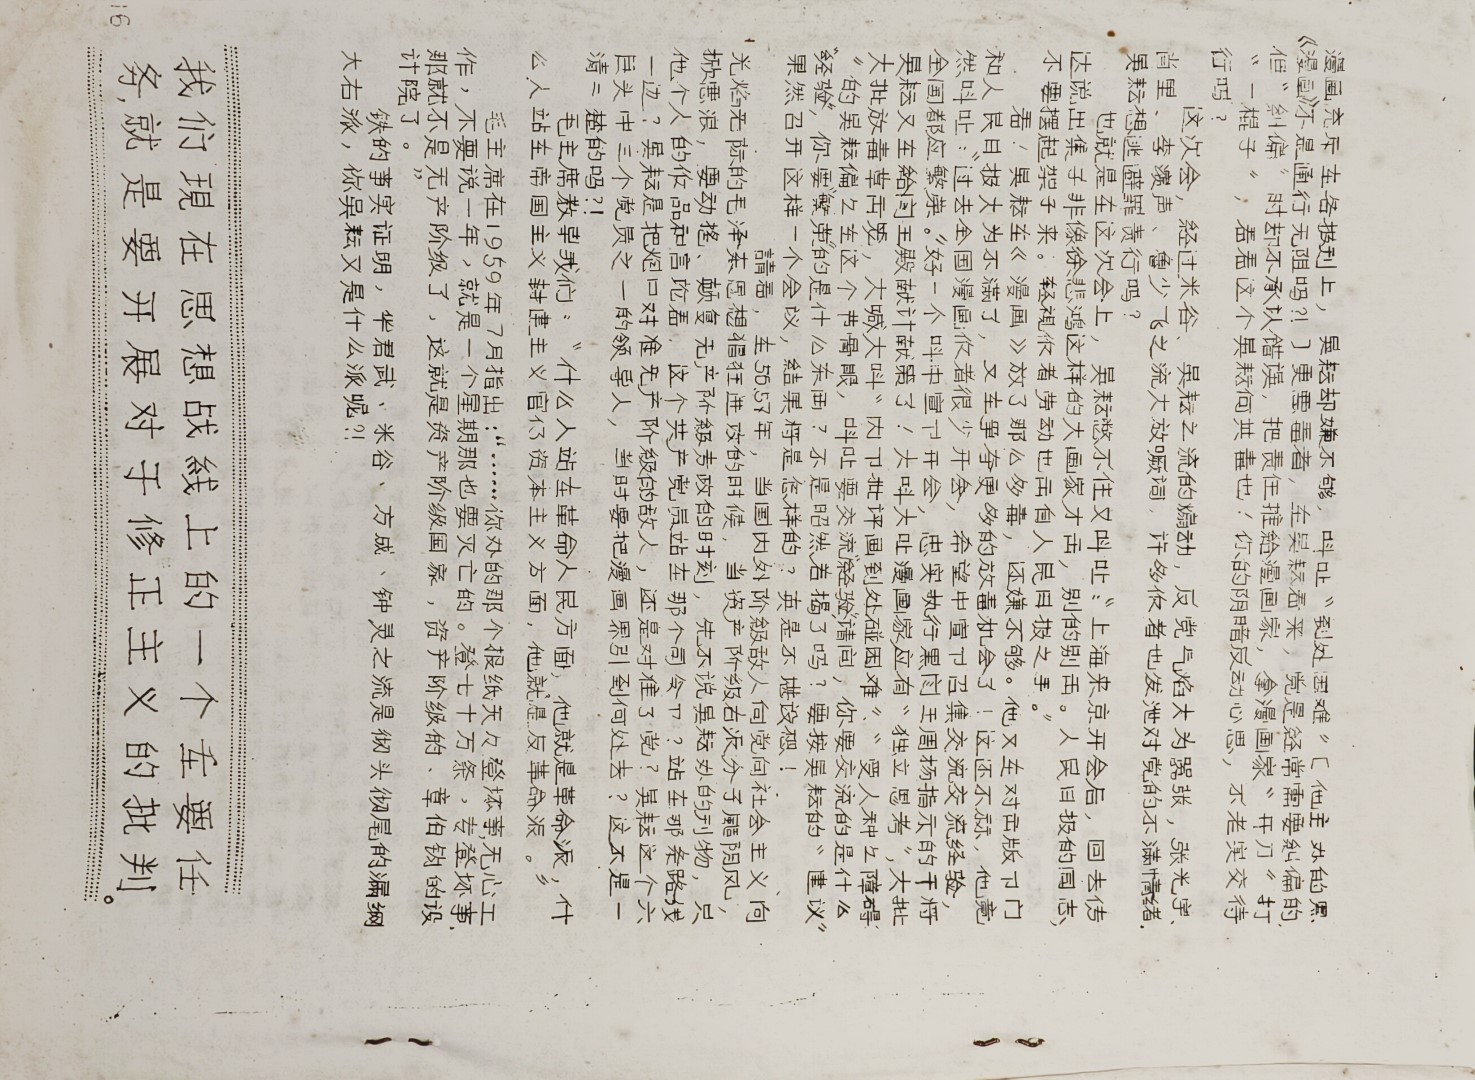 漫画充斥在各报刊上，吴耘却嫌不够，叫吐“到处困难”〔他主办的黑
《漫画》不是通行无阻吗?!〕更恶毒者，在吴耘看来，党是经常需要糾偏的，
但“糾偏”时却不承认错误，把责任推給漫画家，拿漫画家“开刀”打
“一棍子”，看看这个吴耘何其毒也！你的阴暗反动心思，不老实交待
行吗？
这次会，经过米谷、吴耘之流的煽动，反党气焰大为嚣张，张光宇、
肖里、李濱声、魯少飞之流大放厥词，许多作者也发泄对党的不满情緒，
吴耘想逃避罪责行吗？
也就是在这次会上，吴耘憋不住又叫吐：“上海来京开会后，回去传
达说出集子非像徐悲鸿这样的大画家才画，别的别画。人民日报的同志，
不要摆起架子来。轻视作者劳动也画自人民日报之手。”
看！吴耘在《漫画》放了那么多毒，还嫌不够。他又在对出版卩门
和人民日报大为不满了，又在寻夺更多的放毒机会了！这还不算，他竟
然叫吐：“过去全国漫画作者很少开会，希望中宣卩召集交流交流经验，
全国都应繁荣。”好一个叫中宣卩开会，忠实执行黑阎王周扬指示的干将
吴耘又在給阎王殿献计献策了！大叫大吐漫画家应有“独立思考”，大批
大批放毒草画要，大喊大叫“内卩批评画到处碰困难”、“受人种々障碍
”的吴耘偏々在这个节骨眼，叫吐要交流“经验”请问，你要交流的是什么
“经验”，你要“繁荣”的是什么东画？不是昭然若揭了吗？要按吴耘的“建议”
果然召开这样一个会议，结果将是怎样的？真是不堪设想！
請看，在56.57年，当国内外阶級敌人向党向社会主义向
光焰无际的毛泽东思想猖狂进攻的时候，当资产阶級右派分子颳阴风，
掀恶浪，要动摇、颠复无产阶級专政的时刻，先不说吴耘办的刊物，只
他个人的作品和言论看，这个共产党员站在那个司令卩？站在那条路线
一边？吴耘是把炮口对准无产阶級的敌人，还是对准了党？吴耘这个六
巨头中三个党员之一的领导人，当时要把漫画界引到何处去？这不是一
清二楚的吗?!
毛主席教导我们：“什么人站在革命人民方面，他就是革命派，什
么人站在帝国主义封建主义官仃资本主义方面，他就是反革命派。”
毛主席在1959年7月指出：“……你办的那个报紙天々登坏事，无心工
作，不要说一年，就是一个星期那也要灭亡的。登七十万条，专登坏事，
那就不是无产阶级了，这就是资产阶级国家，资产阶级的、章伯钧的设
计院了。”
铁的事实证明，华君武、米谷、方成、钟灵之流是彻头彻尾的漏網
大右派，你吴耘又是什么派呢?!
我们現在思想战线上的一个重要任
务,就是要开展对于修正主义的批判。
16